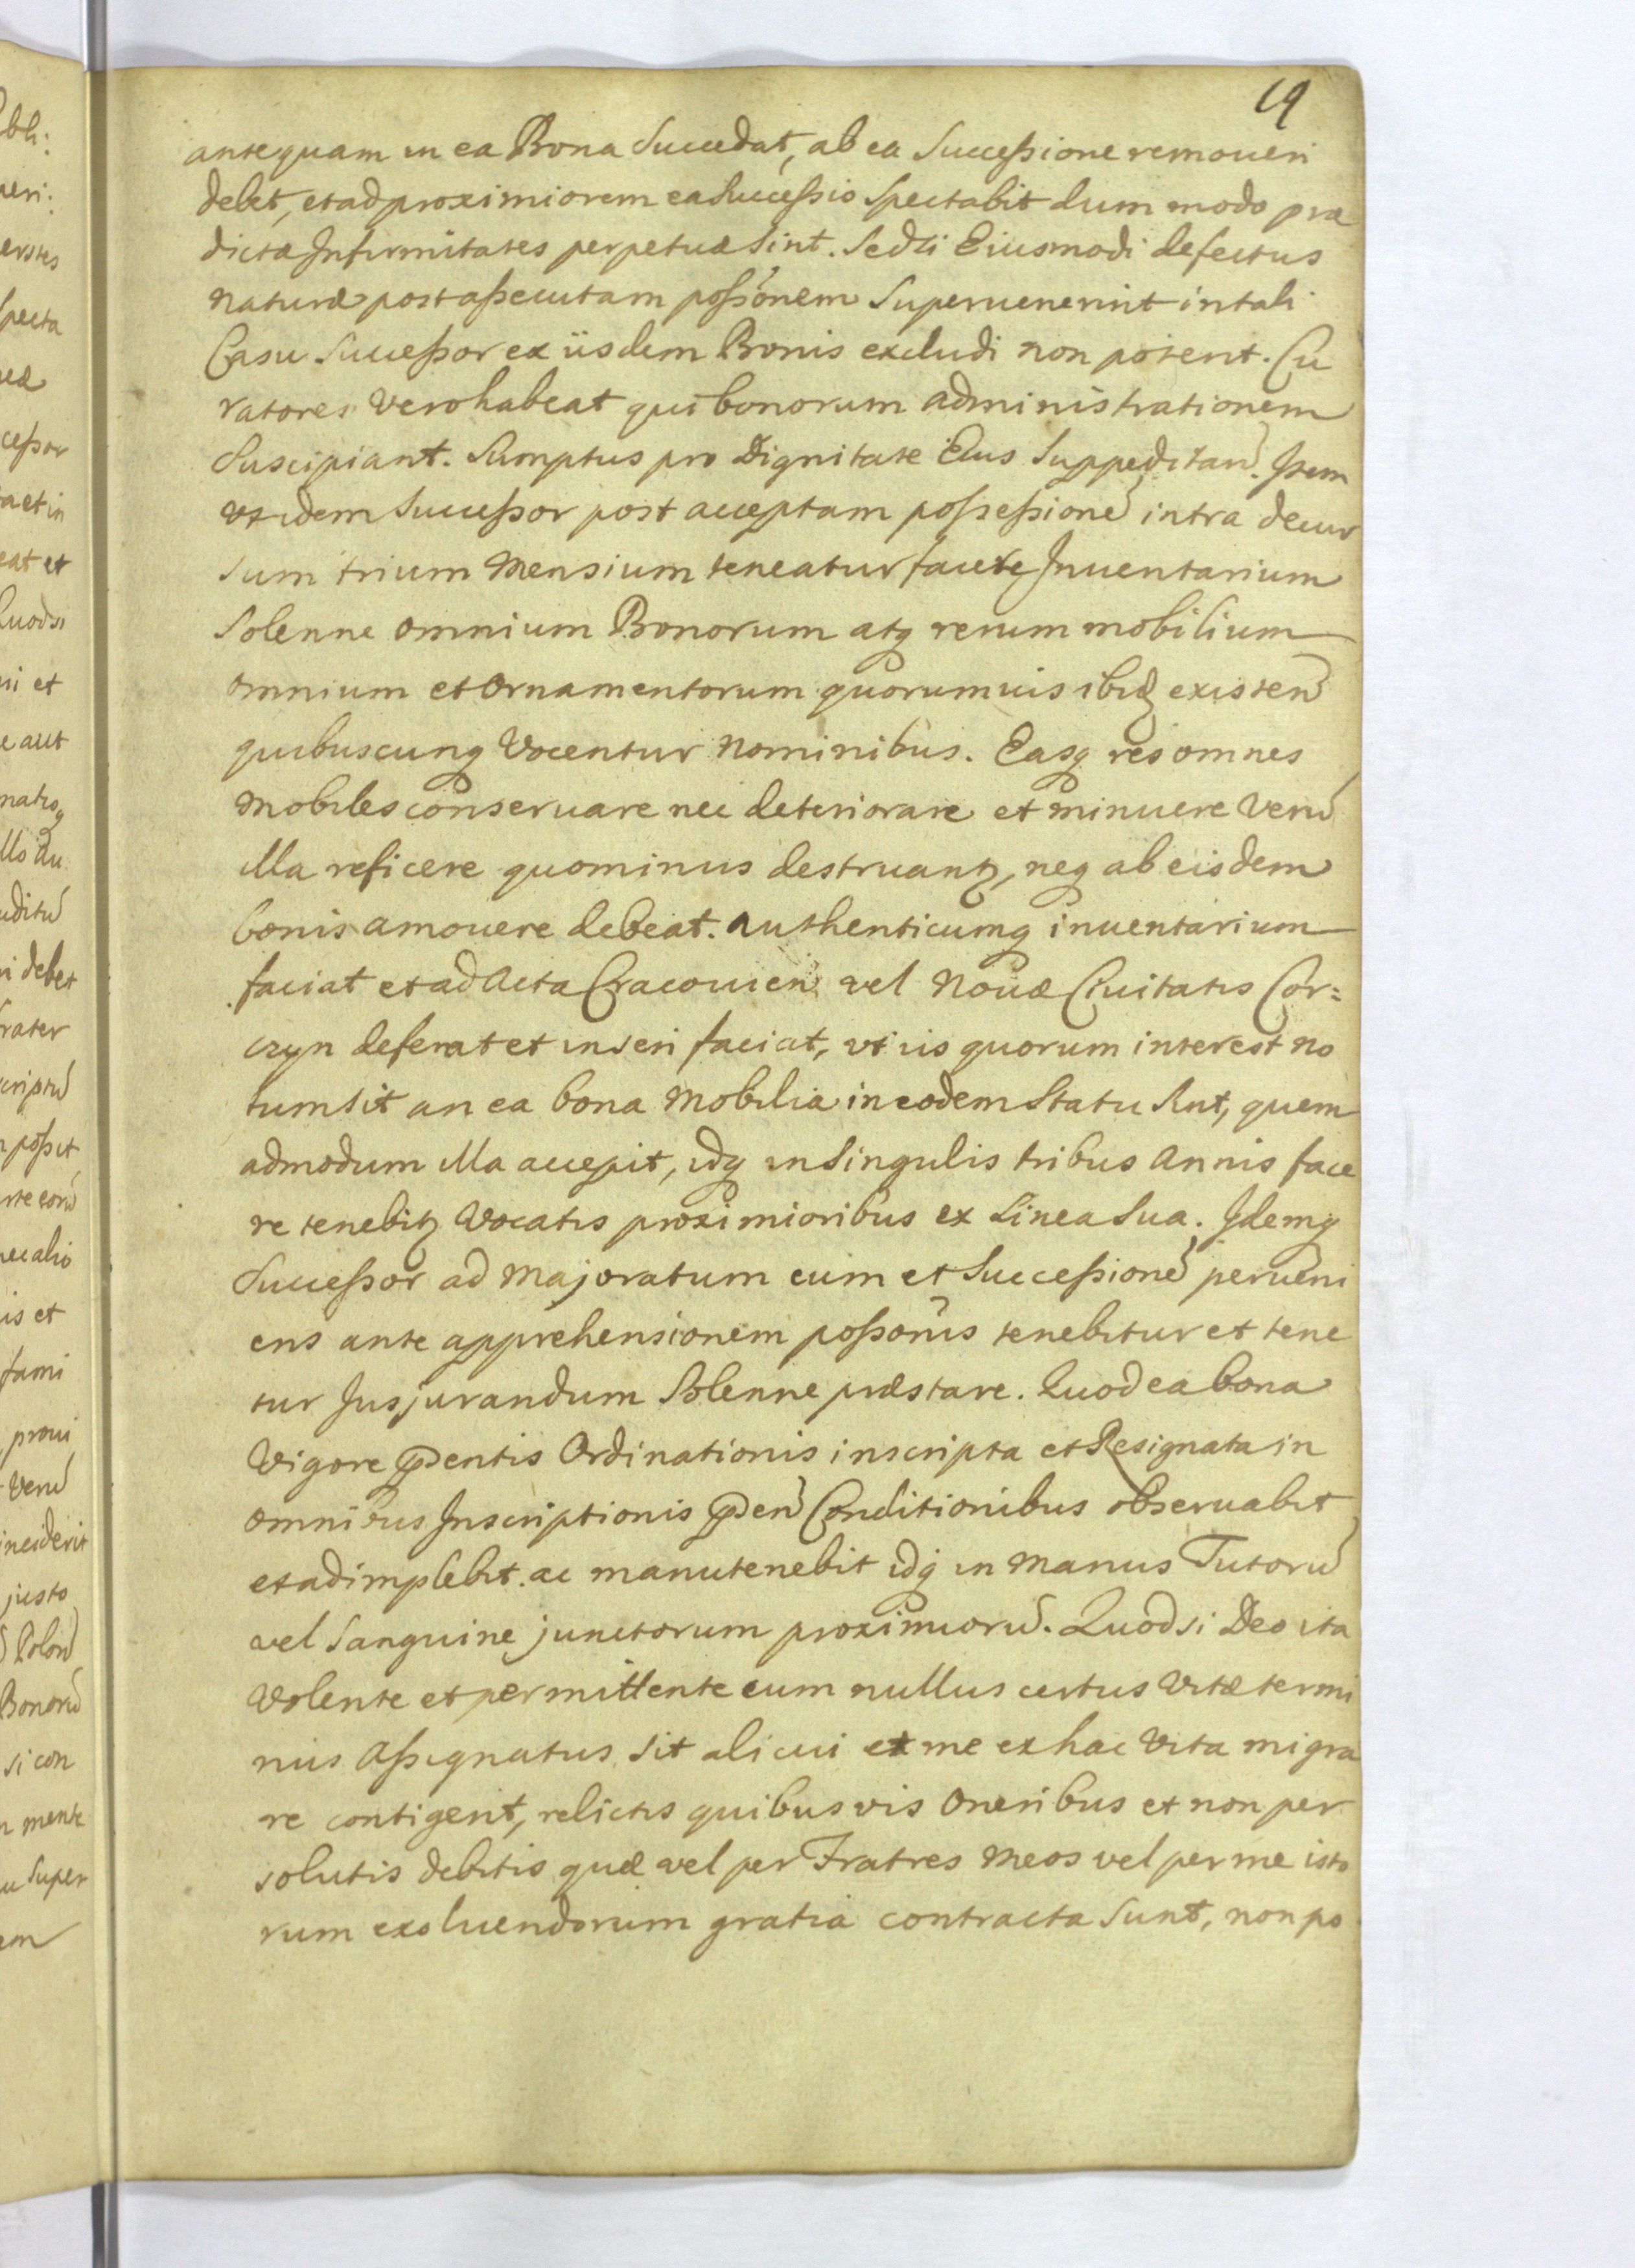 19
antequam in ea Bona Succedat, ab ea Successione remoueri
debet, et ad proximiorem ea Successio Spectabit dum modo præ
dictæ Infirmitates perpetuæ Sint. Sed si Eiusmodi defectus
naturæ post assecutam posson̄em Superuenerint in tali
Casu Successor ex iisdem Bonis excludi non poterit. Cu
ratores vero habeat qui bonorum administrationem
Suscipiant. Sumptus pro Dignitate Eius Suppeditan̄. Item
vt idem Successor post acceptam possessionē intra decur
sum trium Mensium teneatur facere Inuentarium
Solenne omnium Bonorum atq rerum mobilium
omnium et Ornamentorum quorumuis ibid existen̄
quibuscunq Vocentur nominibus. Easq res omnes
Mobiles conseruare nec deteriorare et minuere Verū
illa reficere quominus destruantꝫ, neq ab eisdem
bonis amouere debeat. Authenticumq inuentarium
faciat et ad Acta Cracouien̄ vel Nouæ Ciuitatis Cor=
czyn deferat et inseri faciat, vt iis quorum interest no
tum sit an ea bona Mobilia in eodem Statu Sint, quem
admodum illa accepit, idq in Singulis tribus Annis face
re tenebitꝫ Vocatis proximioribus ex Linea Sua. Idemq
Successor ad Majoratum eum et Successionē perueni
ens ante apprehensionem posson̄is tenebitur et tene
tur Jusjurandum Solenne præstare. Quod ea bona
Vigore p̄entis Ordinationis inscripta et Resignata in
omnibus Inscriptionis p̄en̄ Conditionibus obseruabit
et adimplebit. ac manutenebit idq in Manus Tutorū
vel Sanguine junctorum proximiorū. Quod si Deo ita
Volente et permittente cum nullus certus Vitæ termi
nus Assignatus sit alicui et me ex hac Vita migra
re contigerit, relictis quibusvis Oneribus et non per
solutis debitis quæ vel per Fratres Meos vel per me isto
rum exoluendorum gratia contracta Sunt, non po